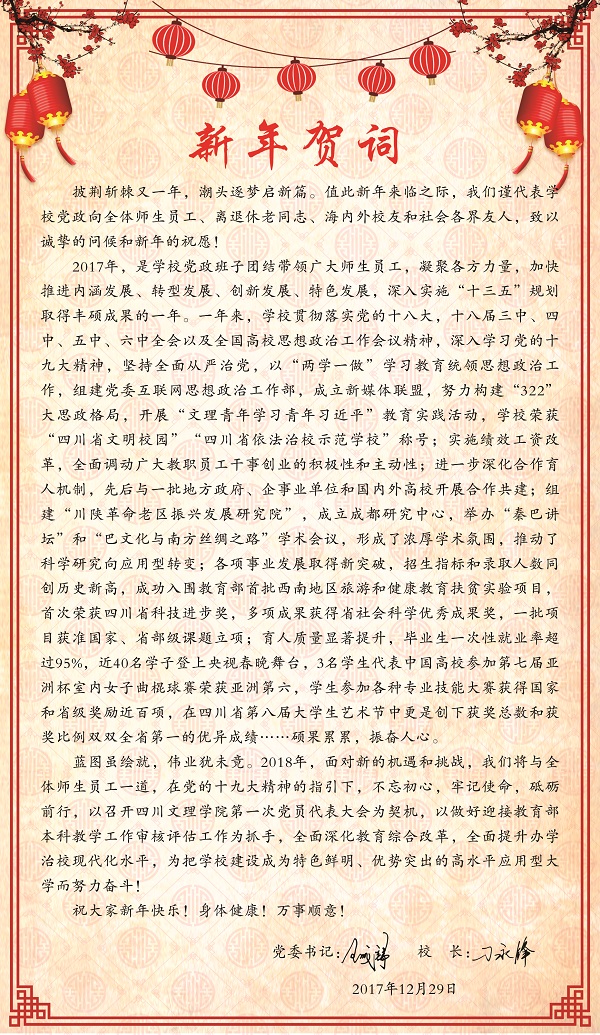 新年贺词
披荆斩棘又一年，潮头逐梦启新篇。值此新年来临之际，我们谨代表学
校党政向全体师生员工、离退休老同志、海内外校友和社会各界友人，致以
诚挚的问候和新年的祝愿！
2017年，是学校党政班子团结带领广大师生员工，凝聚各方力量，加快
推进内涵发展、转型发展、创新发展、特色发展，深入实施“十三五”规划
取得丰硕成果的一年。一年来，学校贯彻落实党的十八大，十八届三中、四
中、五中、六中全会以及全国高校思想政治工作会议精神，深入学习党的十
九大精神，坚持全面从严治党，以“两学一做”学习教育统领思想政治工
作，组建党委互联网思想政治工作部，成立新媒体联盟，努力构建“322”
大思政格局，开展“文理青年学习青年习近平”教育实践活动，学校荣获
“四川省文明校园”“四川省依法治校示范学校”称号；实施绩效工资改
革，全面调动广大教职员工干事创业的积极性和主动性；进一步深化合作育
人机制，先后与一批地方政府、企事业单位和国内外高校开展合作共建；组
建“川陕革命老区振兴发展研究院”，成立成都研究中心，举办“秦巴讲
坛”和“巴文化与南方丝绸之路”学术会议，形成了浓厚学术氛围，推动了
科学研究向应用型转变；各项事业发展取得新突破，招生指标和录取人数同
创历史新高，成功入围教育部首批西南地区旅游和健康教育扶贫实验项目，
首次荣获四川省科技进步奖，多项成果获得省社会科学优秀成果奖，一批项
目获准国家、省部级课题立项；育人质量显著提升，毕业生一次性就业率超
过95%，近40名学子登上央视春晚舞台，3名学生代表中国高校参加第七届亚
洲杯室内女子曲棍球赛荣获亚洲第六，学生参加各种专业技能大赛获得国家
和省级奖励近百项，在四川省第八届大学生艺术节中更是创下获奖总数和获
奖比例双双全省第一的优异成绩……硕果累累，振奋人心。
蓝图虽绘就，伟业犹未竟。2018年，面对新的机遇和挑战，我们将与全
体师生员工一道，在党的十九大精神的指引下，不忘初心，牢记使命，砥砺
前行，以召开四川文理学院第一次党员代表大会为契机，以做好迎接教育部
本科教学工作审核评估工作为抓手，全面深化教育综合改革，全面提升办学
治校现代化水平，为把学校建设成为特色鲜明、优势突出的高水平应用型大
学而努力奋斗！
祝大家新年快乐！身体健康！万事顺意！
党委书记： 校 长：刁永锋
2017年12月29日